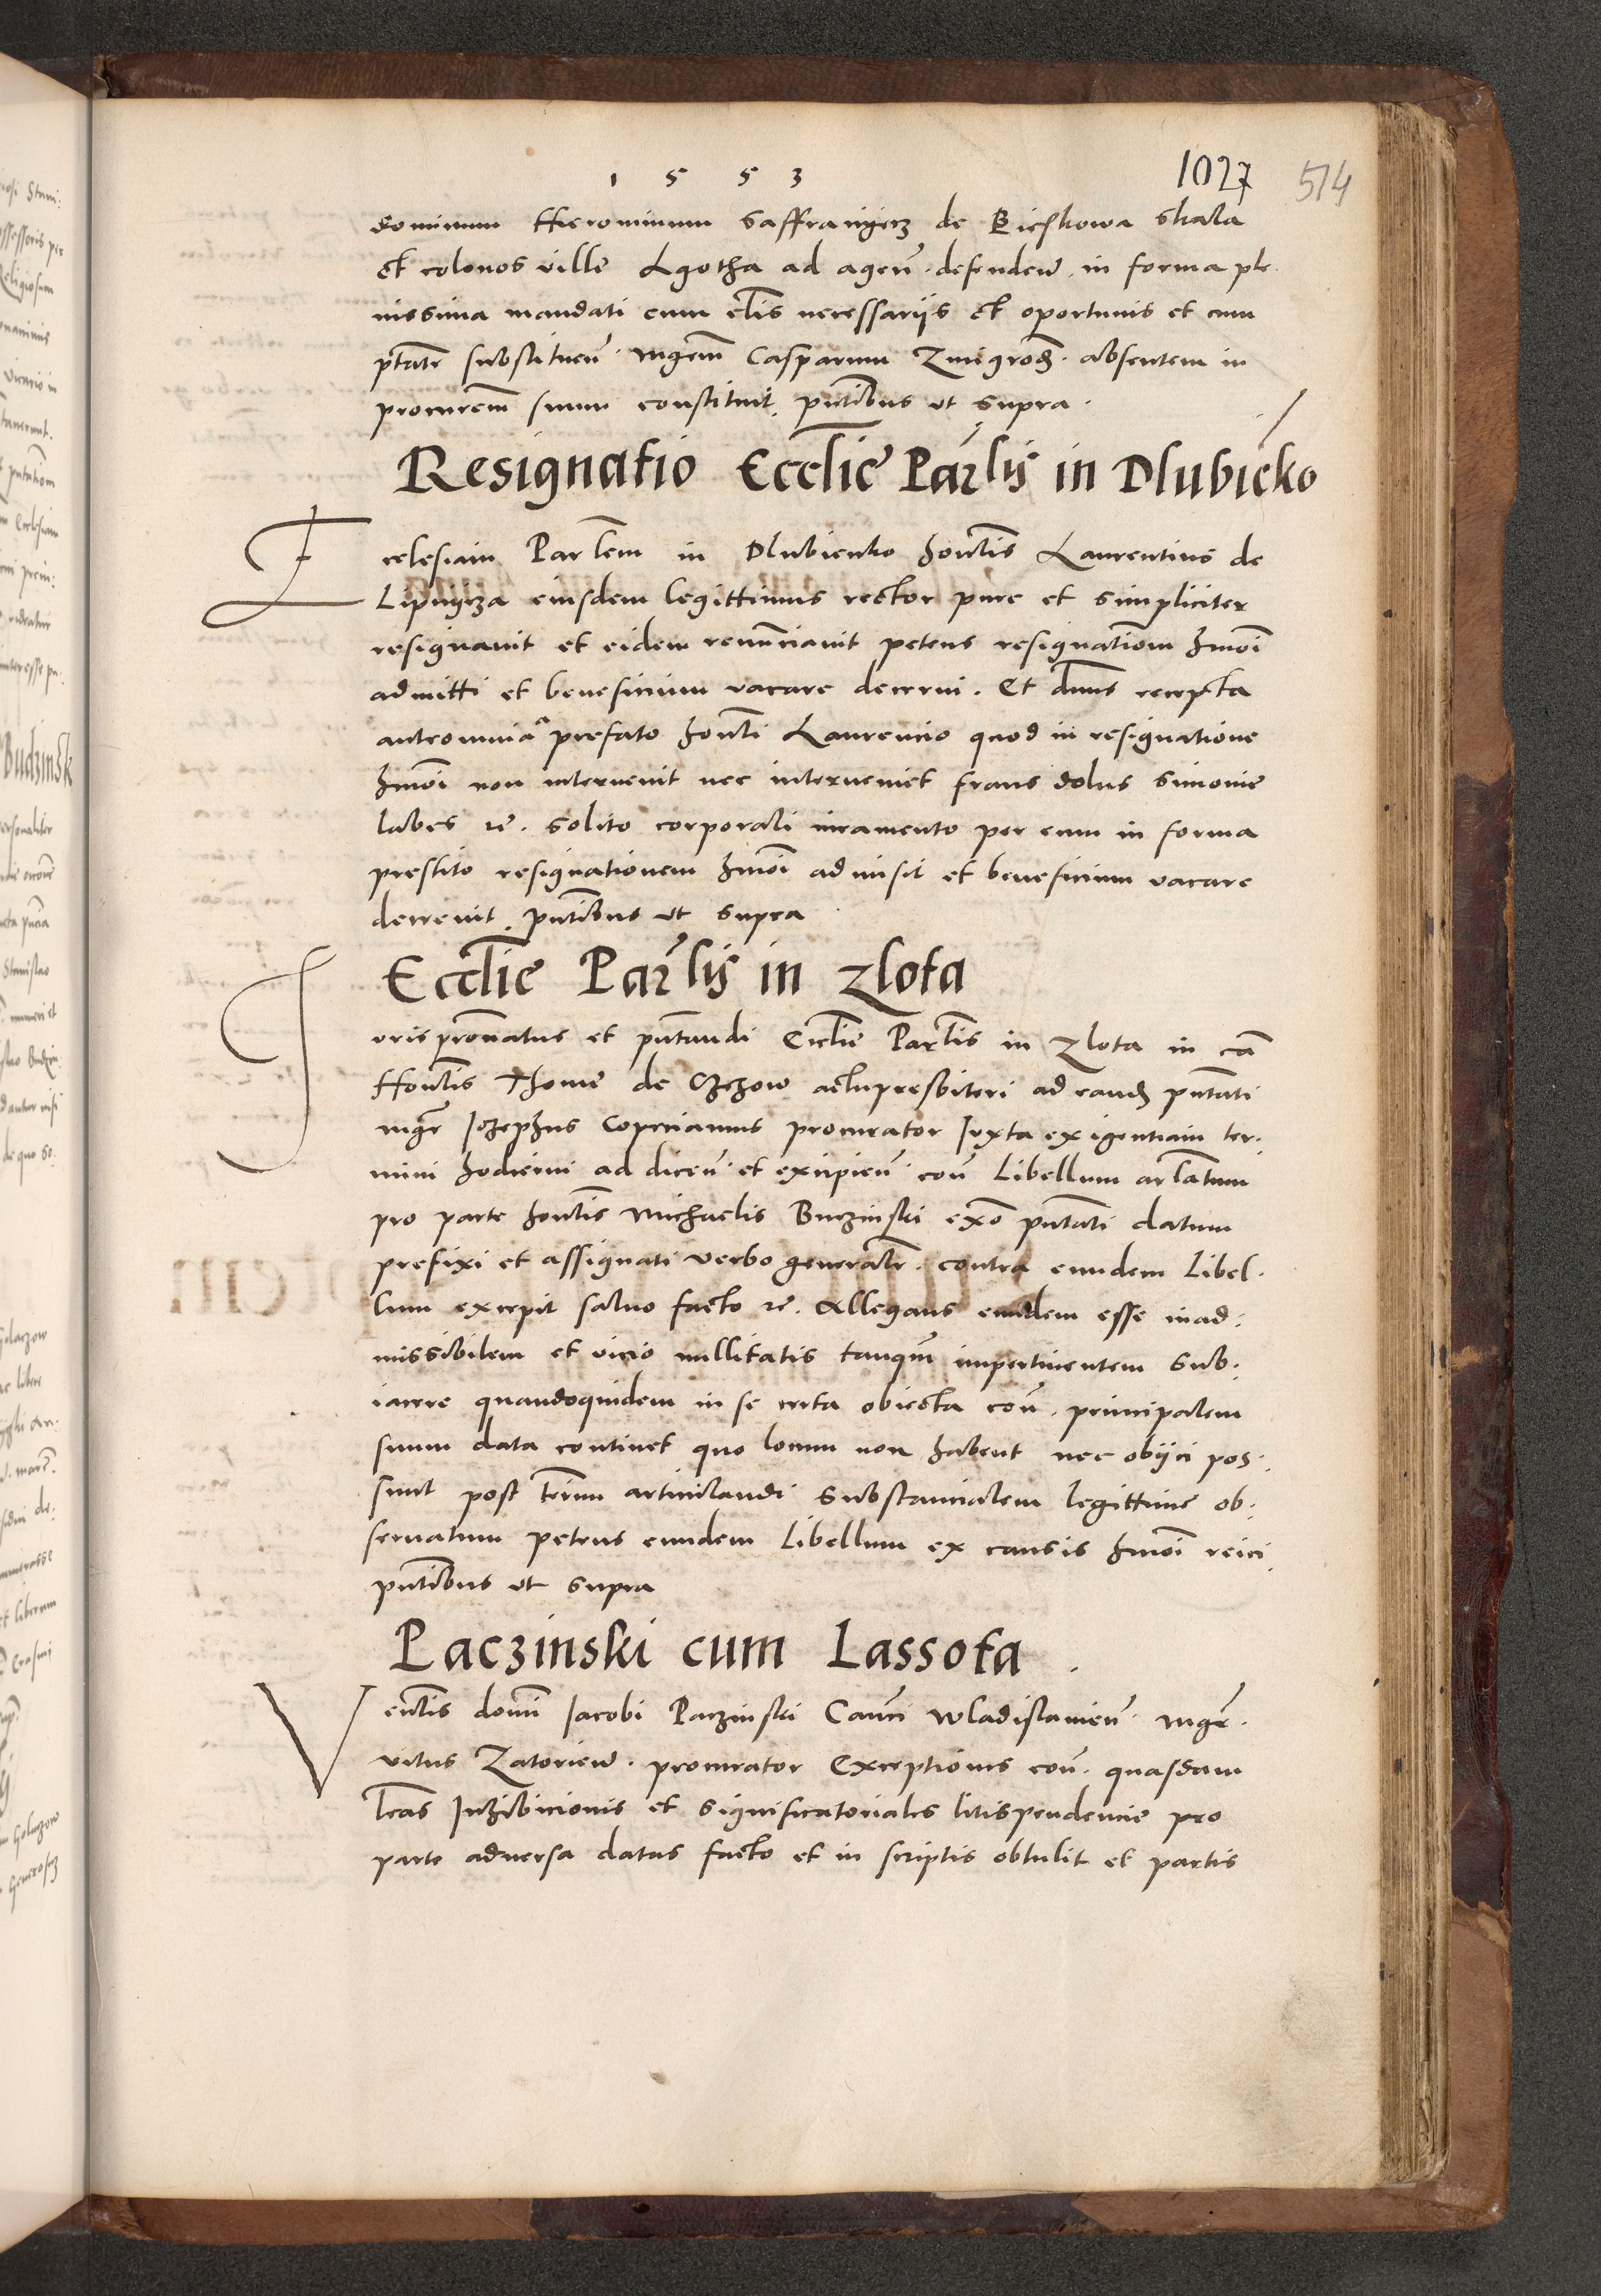 1 5 5 3
1027 514
dominum Hieronimum Saffranyecz de Pieskowa skala
et colonos ville Lgotha ad agen̄. defenden̄. in forma ple.
nissima mandati cum cl̄is necessarijs et oportunis et cum
p̄tate substituen̄. mgrm̄ Casparum Zmigrod̄. absentem in
procurem̄ suum constituit. pn̄tibus ut supra.
Resignatio Eccl̄ie Par̄lis in Dlubicko
Ecclesiam Parl̄em in Dlubienko hon̄tis Laurentius de
Lipnycza eiusdem legittimus rector pure et simpliciter
resignavit et eidem renun̄ciavit petens resignatiom̄ hmōi
admitti et beneficium vacare decerni. Et dn̄us recepta
antеomnia prefato hon̄ti Laurencio quod in resignatione
hmōi non intervenit nec interveniet fraus dolus simonie
labes rē. solito corporali iuramento per eum in forma
prestito resignationem hmōi admisit et beneficium vacare
decrevit. pn̄tibus ut supra
Eccl̄ie Par̄lis in Zlota
Juris pron̄atus et pn̄tandi Eccl̄ie Parl̄is in Zlota in cā
Hon̄tis Thome de Czchow archipresbiteri ad eand̄ pn̄tati
mgr̄ Jozephus Coprcianus procurator Juxta exigentiam ter.
mini hodierni ad dicen̄. et excipien̄. con̄ Libellum arl̄atum
pro parte hon̄tis Michaelis Buczinski exō pn̄tati datum
prefixi et assignati verbo generalr̄. contra eundem Libel.
lum excepit salvo facto rē. Allegans eundem esse inad.
missibilem et vicio nullitatis tanqm̄ impertinentem sub.
iacere quandoquidem in se certa obiecta con̄. principalem
suum data continet quo locum non habent nec obijci pos.
sunt post term̄ articulandi substancialem legittime ob.
servatum petens eundem Libellum ex causis hmōi reici
pn̄tibus ut supra
Paczinski cum Lassota
Ven̄tis domī Jacobi Paczinski Can̄ci Wladislavien̄. mgr̄.
vitus Zatorien̄. procurator Exceptiones con̄. quasdam
lr̄as Inhibicionis et significatoriales litispendencie pro
parte adversa datas facto et in scriptis obtulit et partis